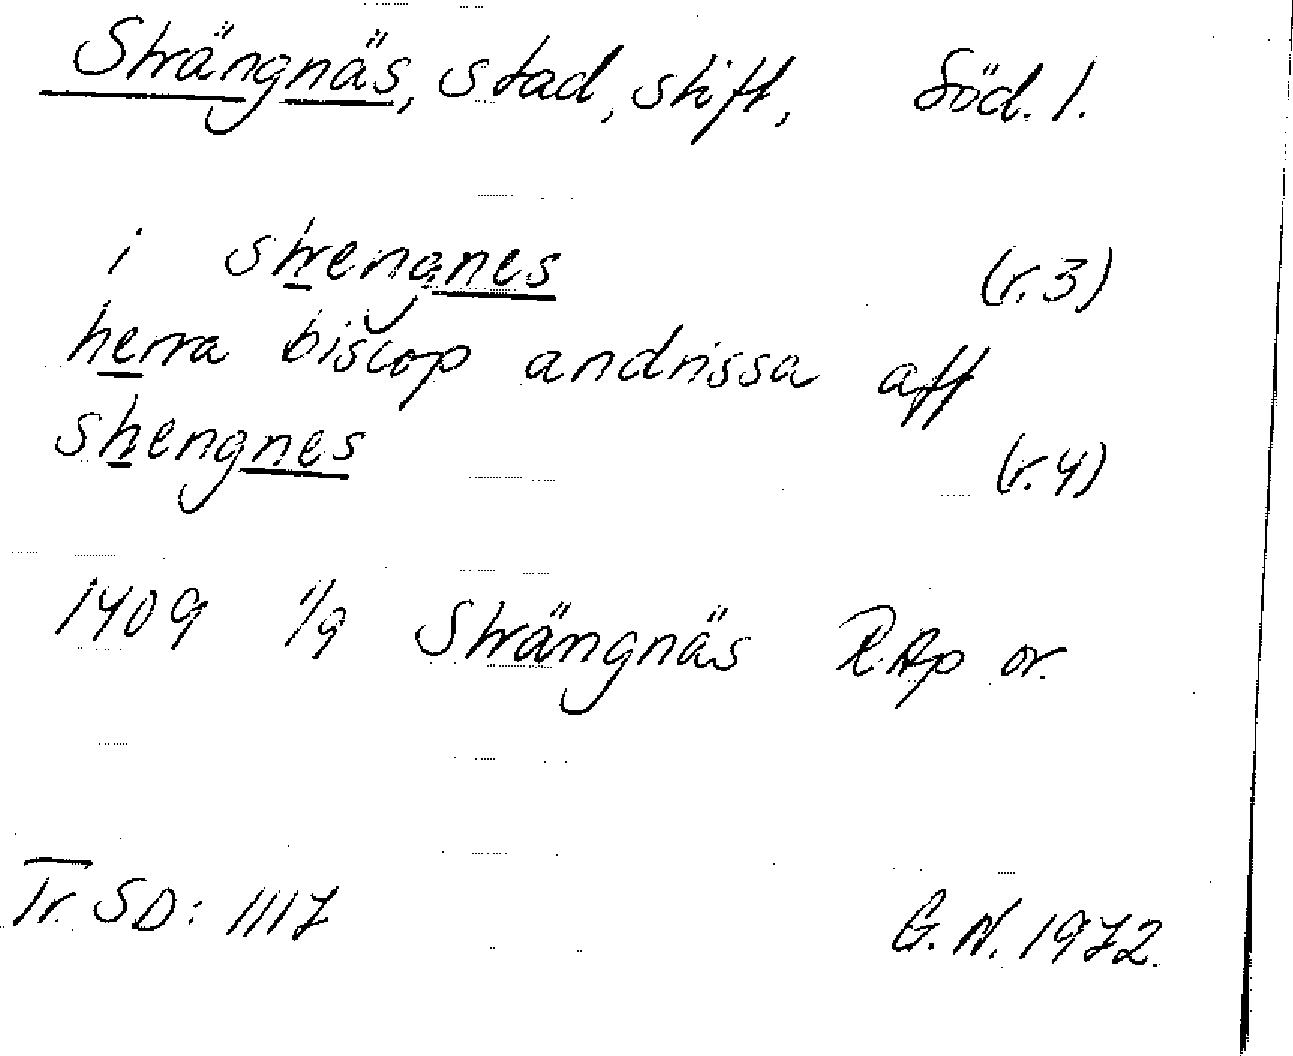 Strängnäs, stad, stift, Söd. l.
i strengnes (r. 3)
herra biscop andrissa aff
strengnes (r. 4)
1409 1/9 Strängnäs RAp or.
Tr. SD: 1117 G. N. 1972.